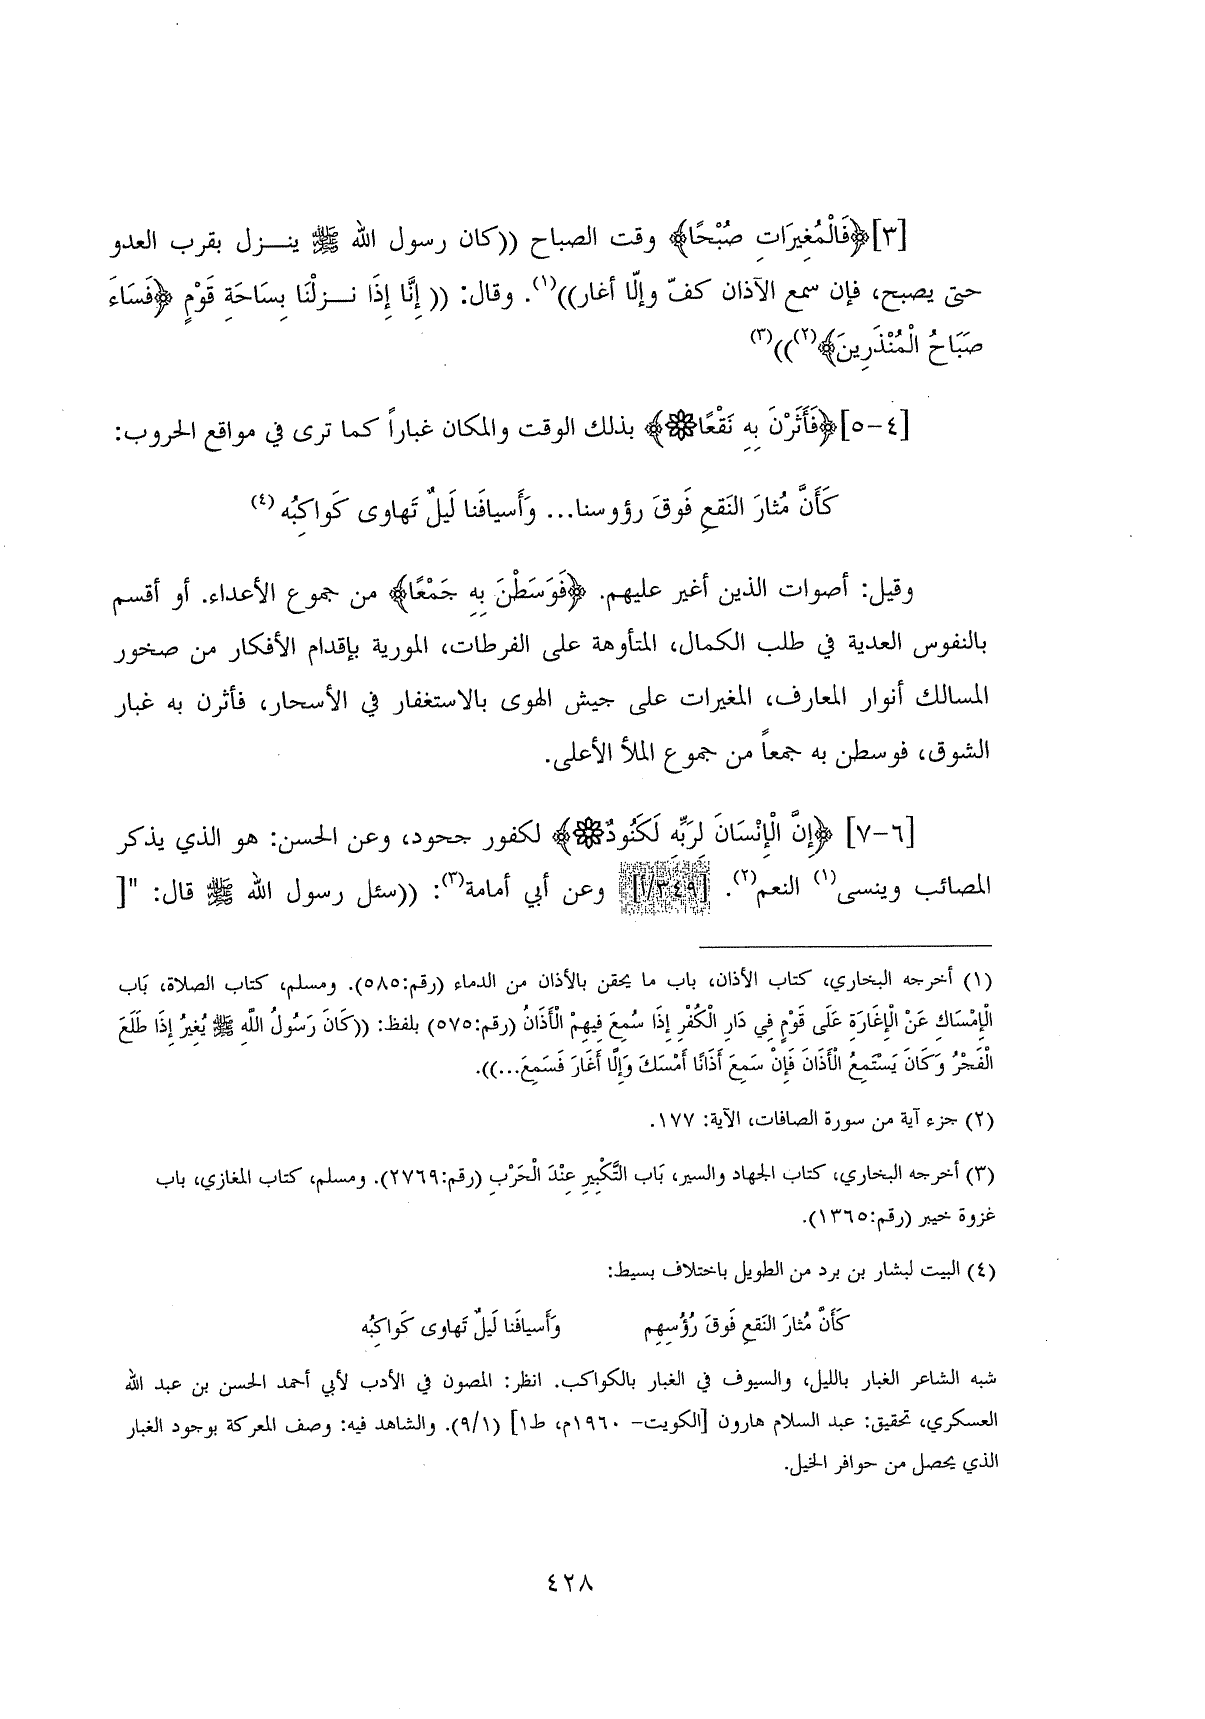 [٣]﴿فَالْمُغِيرَاتِ صُبْحًا﴾ وقت الصباح ((كان رسول الله ﷺ ينــزل بقرب العدو
حتى يصبح، فإن سمع الآذان كفّ وإلّا أغار))(١). وقال: (( إِنَّا إِذَا نــزلْنَا بِسَاحَةِ قَوْمٍ ﴿فَسَاءَ
صَبَاحُ الْمُنْذَرِينَ﴾(٢)))(٣)
[٤-٥]﴿فَأَثَرْنَ بِهِ نَقْعًا۞﴾ بذلك الوقت والمكان غباراً كما ترى في مواقع الحروب:
كَأَنَّ مُثارَ النَقعِ فَوقَ رؤوسنا... وَأَسيافَنا لَيلٌ تَهاوى كَواكِبُه (٤)
وقيل: أصوات الذين أغير عليهم. ﴿فَوَسَطْنَ بِهِ جَمْعًا﴾ من جموع الأعداء. أو أقسم
بالنفوس العدية في طلب الكمال، المتأوهة على الفرطات، المورية بإقدام الأفكار من صخور
المسالك أنوار المعارف، المغيرات على جيش الهوى بالاستغفار في الأسحار، فأثرن به غبار
الشوق، فوسطن به جمعاً من جموع الملأ الأعلى.
[٦-٧] ﴿إِنَّ الْإِنْسَانَ لِرَبِّهِ لَكَنُودٌ۞﴾ لكفور جحود، وعن الحسن: هو الذي يذكر
المصائب وينسى(١) النعم(٢). [٣٤٩/أ] وعن أبي أمامة(٣): ((سئل رسول الله ﷺ قال: "[
(١) أخرجه البخاري، كتاب الأذان، باب ما يحقن بالأذان من الدماء (رقم:٥٨٥). ومسلم، كتاب الصلاة، بَاب
الْإِمْسَاكِ عَنْ الْإِغَارَةِ عَلَى قَوْمٍ فِي دَارِ الْكُفْرِ إِذَا سُمِعَ فِيهِمْ الْأَذَانُ (رقم:٥٧٥) بلفظ: ((كَانَ رَسُولُ اللَّهِ ﷺ يُغِيرُ إِذَا طَلَعَ
الْفَجْرُ وَكَانَ يَسْتَمِعُ الْأَذَانَ فَإِنْ سَمِعَ أَذَانًا أَمْسَكَ وَإِلَّا أَغَارَ فَسَمِعَ...)).
(٢) جزء آية من سورة الصافات، الآية: ١٧٧.
(٣) أخرجه البخاري، كتاب الجهاد والسير، بَاب التَّكْبِيرِ عِنْدَ الْحَرْبِ (رقم:٢٧٦٩). ومسلم، كتاب المغازي، باب
غزوة خيبر (رقم:١٣٦٥).
(٤) البيت لبشار بن برد من الطويل باختلاف بسيط:
كَأَنَّ مُثارَ النَقعِ فَوقَ رُؤُسِهِم وَأَسيافَنا لَيلٌ تَهاوى كَواكِبُه
شبه الشاعر الغبار بالليل، والسيوف في الغبار بالكواكب. انظر: المصون في الأدب لأبي أحمد الحسن بن عبد الله
العسكري، تحقيق: عبد السلام هارون [الكويت- ١٩٦٠م، ط١] (٩/١). والشاهد فيه: وصف المعركة بوجود الغبار
الذي يحصل من حوافر الخيل.
٤٢٨